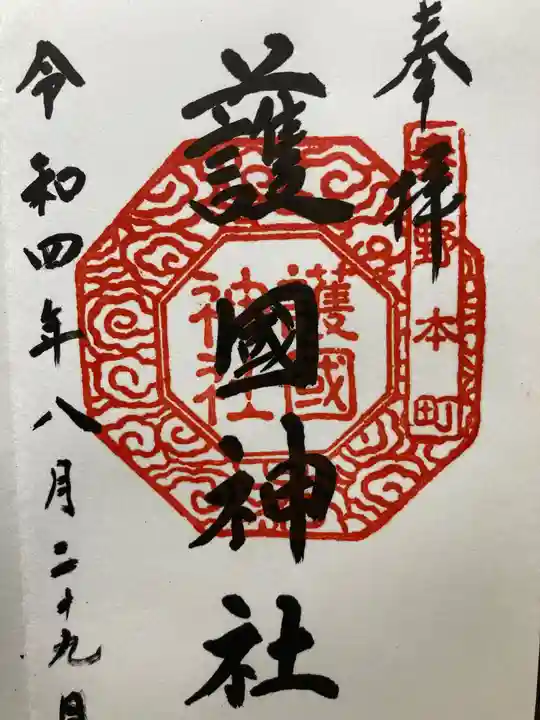 奉拝
野本町
護國神社
護國神社
令和四年八月二十九日